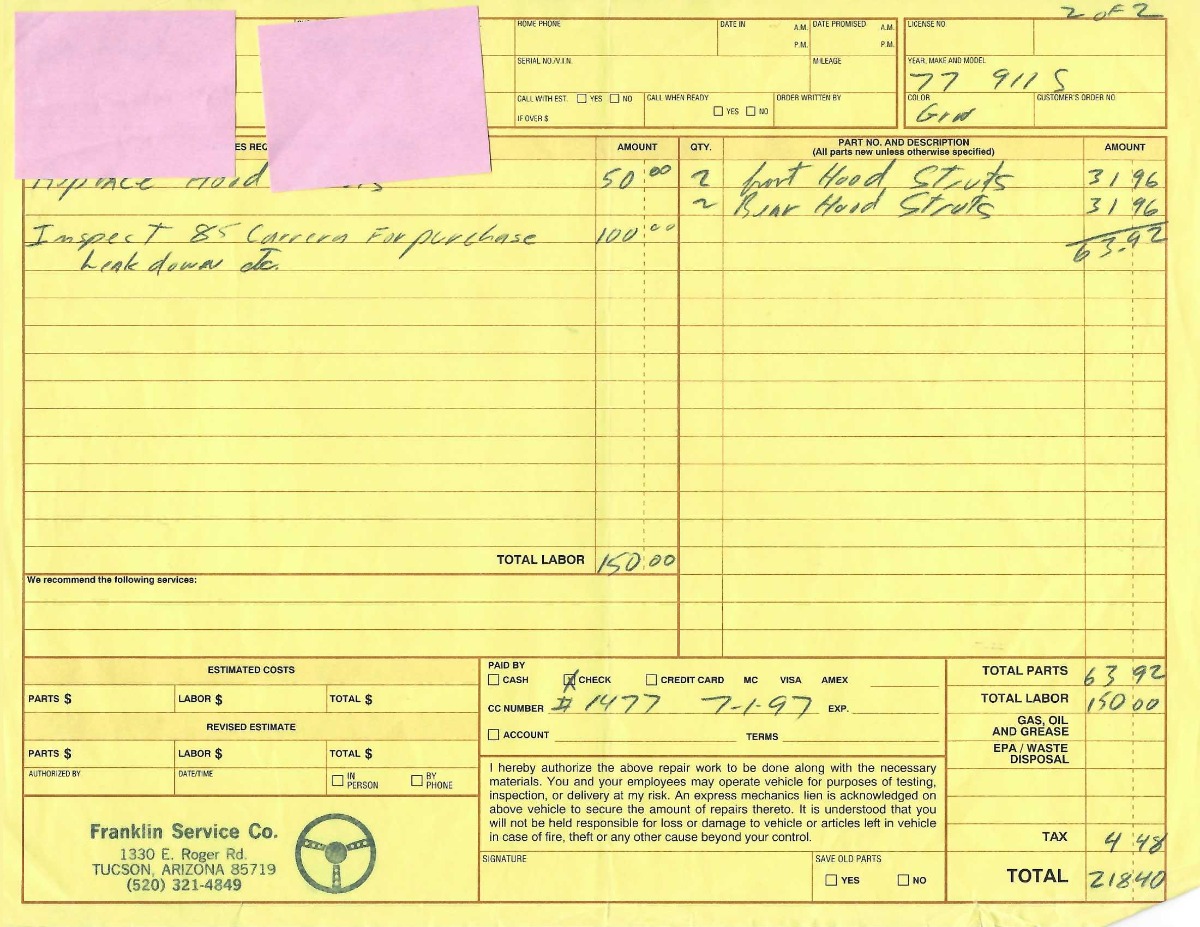 2 of 2
HOME PHONE
DATE IN
A.M.
P.M.
DATE PROMISED
A.M.
P.M.
LICENSE NO.
SERIAL NO./V.I.N.
MILEAGE
YEAR, MAKE AND MODEL
77 911 S
CALL WITH EST. YES NO
IF OVER $
CALL WHEN READY
YES NO
ORDER WRITTEN BY
COLOR
Grn
CUSTOMER'S ORDER NO.
AMOUNT
QTY.
PART NO. AND DESCRIPTION
(All parts new unless otherwise specified)
AMOUNT
Hood 50.00
2 front Hood Struts 31 96
2 Rear Hood Struts 31 96
Inspect 85 Carrera For purchase 100.00
63.92
Leak down etc.
TOTAL LABOR 150.00
We recommend the following services:
ESTIMATED COSTS
PARTS $ LABOR $ TOTAL $
REVISED ESTIMATE
PARTS $ LABOR $ TOTAL $
AUTHORIZED BY DATE/TIME IN PERSON BY PHONE
Franklin Service Co.
1330 E. Roger Rd.
TUCSON, ARIZONA 85719
(520) 321-4849
PAID BY
CASH CHECK CREDIT CARD MC VISA AMEX
CC NUMBER # 1477 7-1-97 EXP.
ACCOUNT TERMS
I hereby authorize the above repair work to be done along with the necessary
materials. You and your employees may operate vehicle for purposes of testing,
inspection, or delivery at my risk. An express mechanics lien is acknowledged on
above vehicle to secure the amount of repairs thereto. It is understood that you
will not be held responsible for loss or damage to vehicle or articles left in vehicle
in case of fire, theft or any other cause beyond your control.
SIGNATURE
SAVE OLD PARTS
YES NO
TOTAL PARTS 63 92
TOTAL LABOR 150 00
GAS, OIL
AND GREASE
EPA / WASTE
DISPOSAL
TAX 4 48
TOTAL 218 40